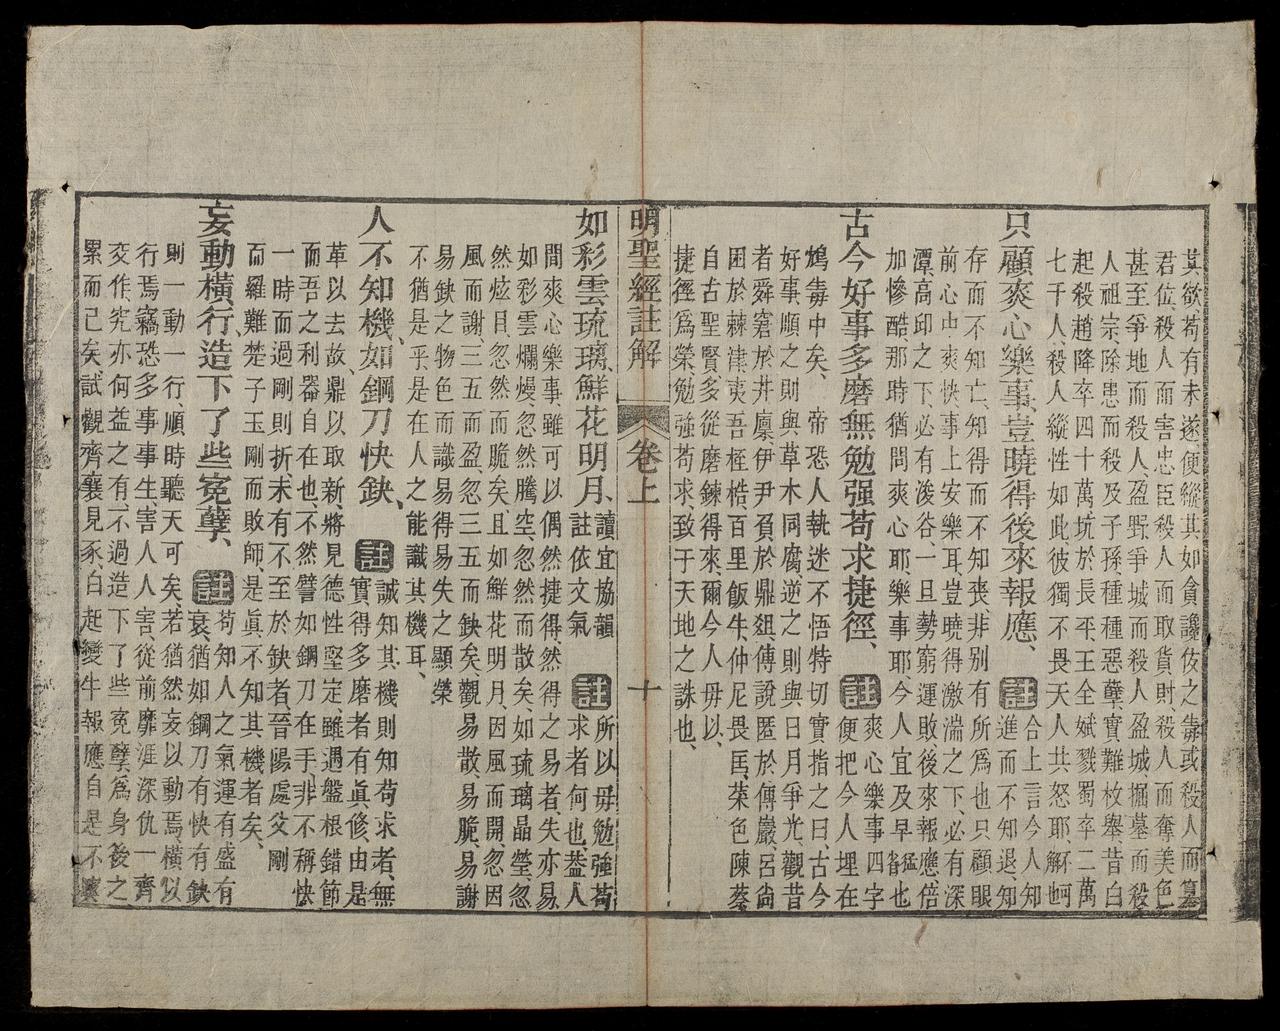 其欲苟有未遂便縱其如貪讒伎之毒或殺人而篡
君位、殺人而害忠臣殺人而取貨財、殺人而奪美色
甚至爭地而殺人、盈野爭城而殺人盈城、掘墓而殺
人祖宗、除患而殺及子孫種種惡孽實難枚舉、昔白
起殺趙降卒四十萬坑於長平、王全斌戮蜀卒二萬
七千人、殺人縱性如此、彼獨不畏天人共怒耶、解
只顧爽心樂事、豈曉得後來報應、註合上言今人知
進而不知退、知
存而不知亡、知得而不知喪、非别有所爲也只顧眼
前心中爽快事上安樂耳、豈曉得激湍之下、必有深
潭、高邱之下、必有浚谷、一旦勢窮運敗後來報應倍
加慘酷、那時猶問爽心耶、樂事耶今人宜及早猛省也
古今好事多磨無勉强苟求捷徑、註爽心樂事四字
便把今人埋在
鴆毒中矣、帝恐人執迷不悟特切實指之曰、古今
好事、順之則與草木同腐、逆之則與日月爭光、觀昔
者舜窘於井廩伊尹負於鼎俎、傅說匿於傅巖、呂尚
困於棘津夷吾桎梏、百里飯牛、仲尼畏匡、菜色陳蔡
自古聖賢、多從磨鍊得來、爾今人毋以、
捷徑爲榮、勉強苟求、致于天地之誅也、
明聖經註解　卷上　十
如彩雲琉璃、鮮花明月、讀宜協韻註依文氣　註所以毋勉強苟
求者何也、蓋人
間爽心樂事、雖可以偶然捷得、然得之易者失亦易
如彩雲爛熳、忽然騰空、忽然而散矣、如琉璃晶瑩、忽
然炫目、忽然而脆矣、且如鮮花明月、因風而開、忽因
風而謝、三五而盈、忽三五而缺矣、觀易散、易脆、易謝
易缺之物色而識易得易失之顯榮
不猶是乎、是在人之能識其機耳、
人不知機、如鋼刀快鈌、註誠知其機則知苟求者、無
實、得多磨者有眞修、由是
革以去故、鼎以取新、將見德性堅定、雖遇盤根錯節
而吾之利器自在也、不然譬如鋼刀在手、非不稱快
一時而過剛則折、未有不至於缺者、晉陽處父剛
而羅難楚子玉剛而敗師、是眞不知其機者矣、
妄動橫行、造下了些寃孽、註苟知人之氣運有盛有
衰、猶如鋼刀有快有鈌
則一動一行、順時聽天可矣、若猶然妄以動焉橫以
行焉竊恐多事事生、害人人害、從前靡涯深仇一齊
交作、究亦何益之有、不過造下了些寃孽、爲身後之
累而已矣、試觀齊襄見豕、白起變牛報應自是不爽